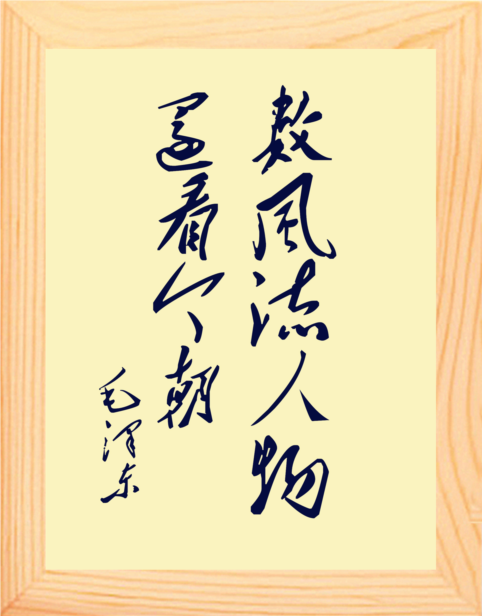 数风流人物
還看今朝
毛澤东